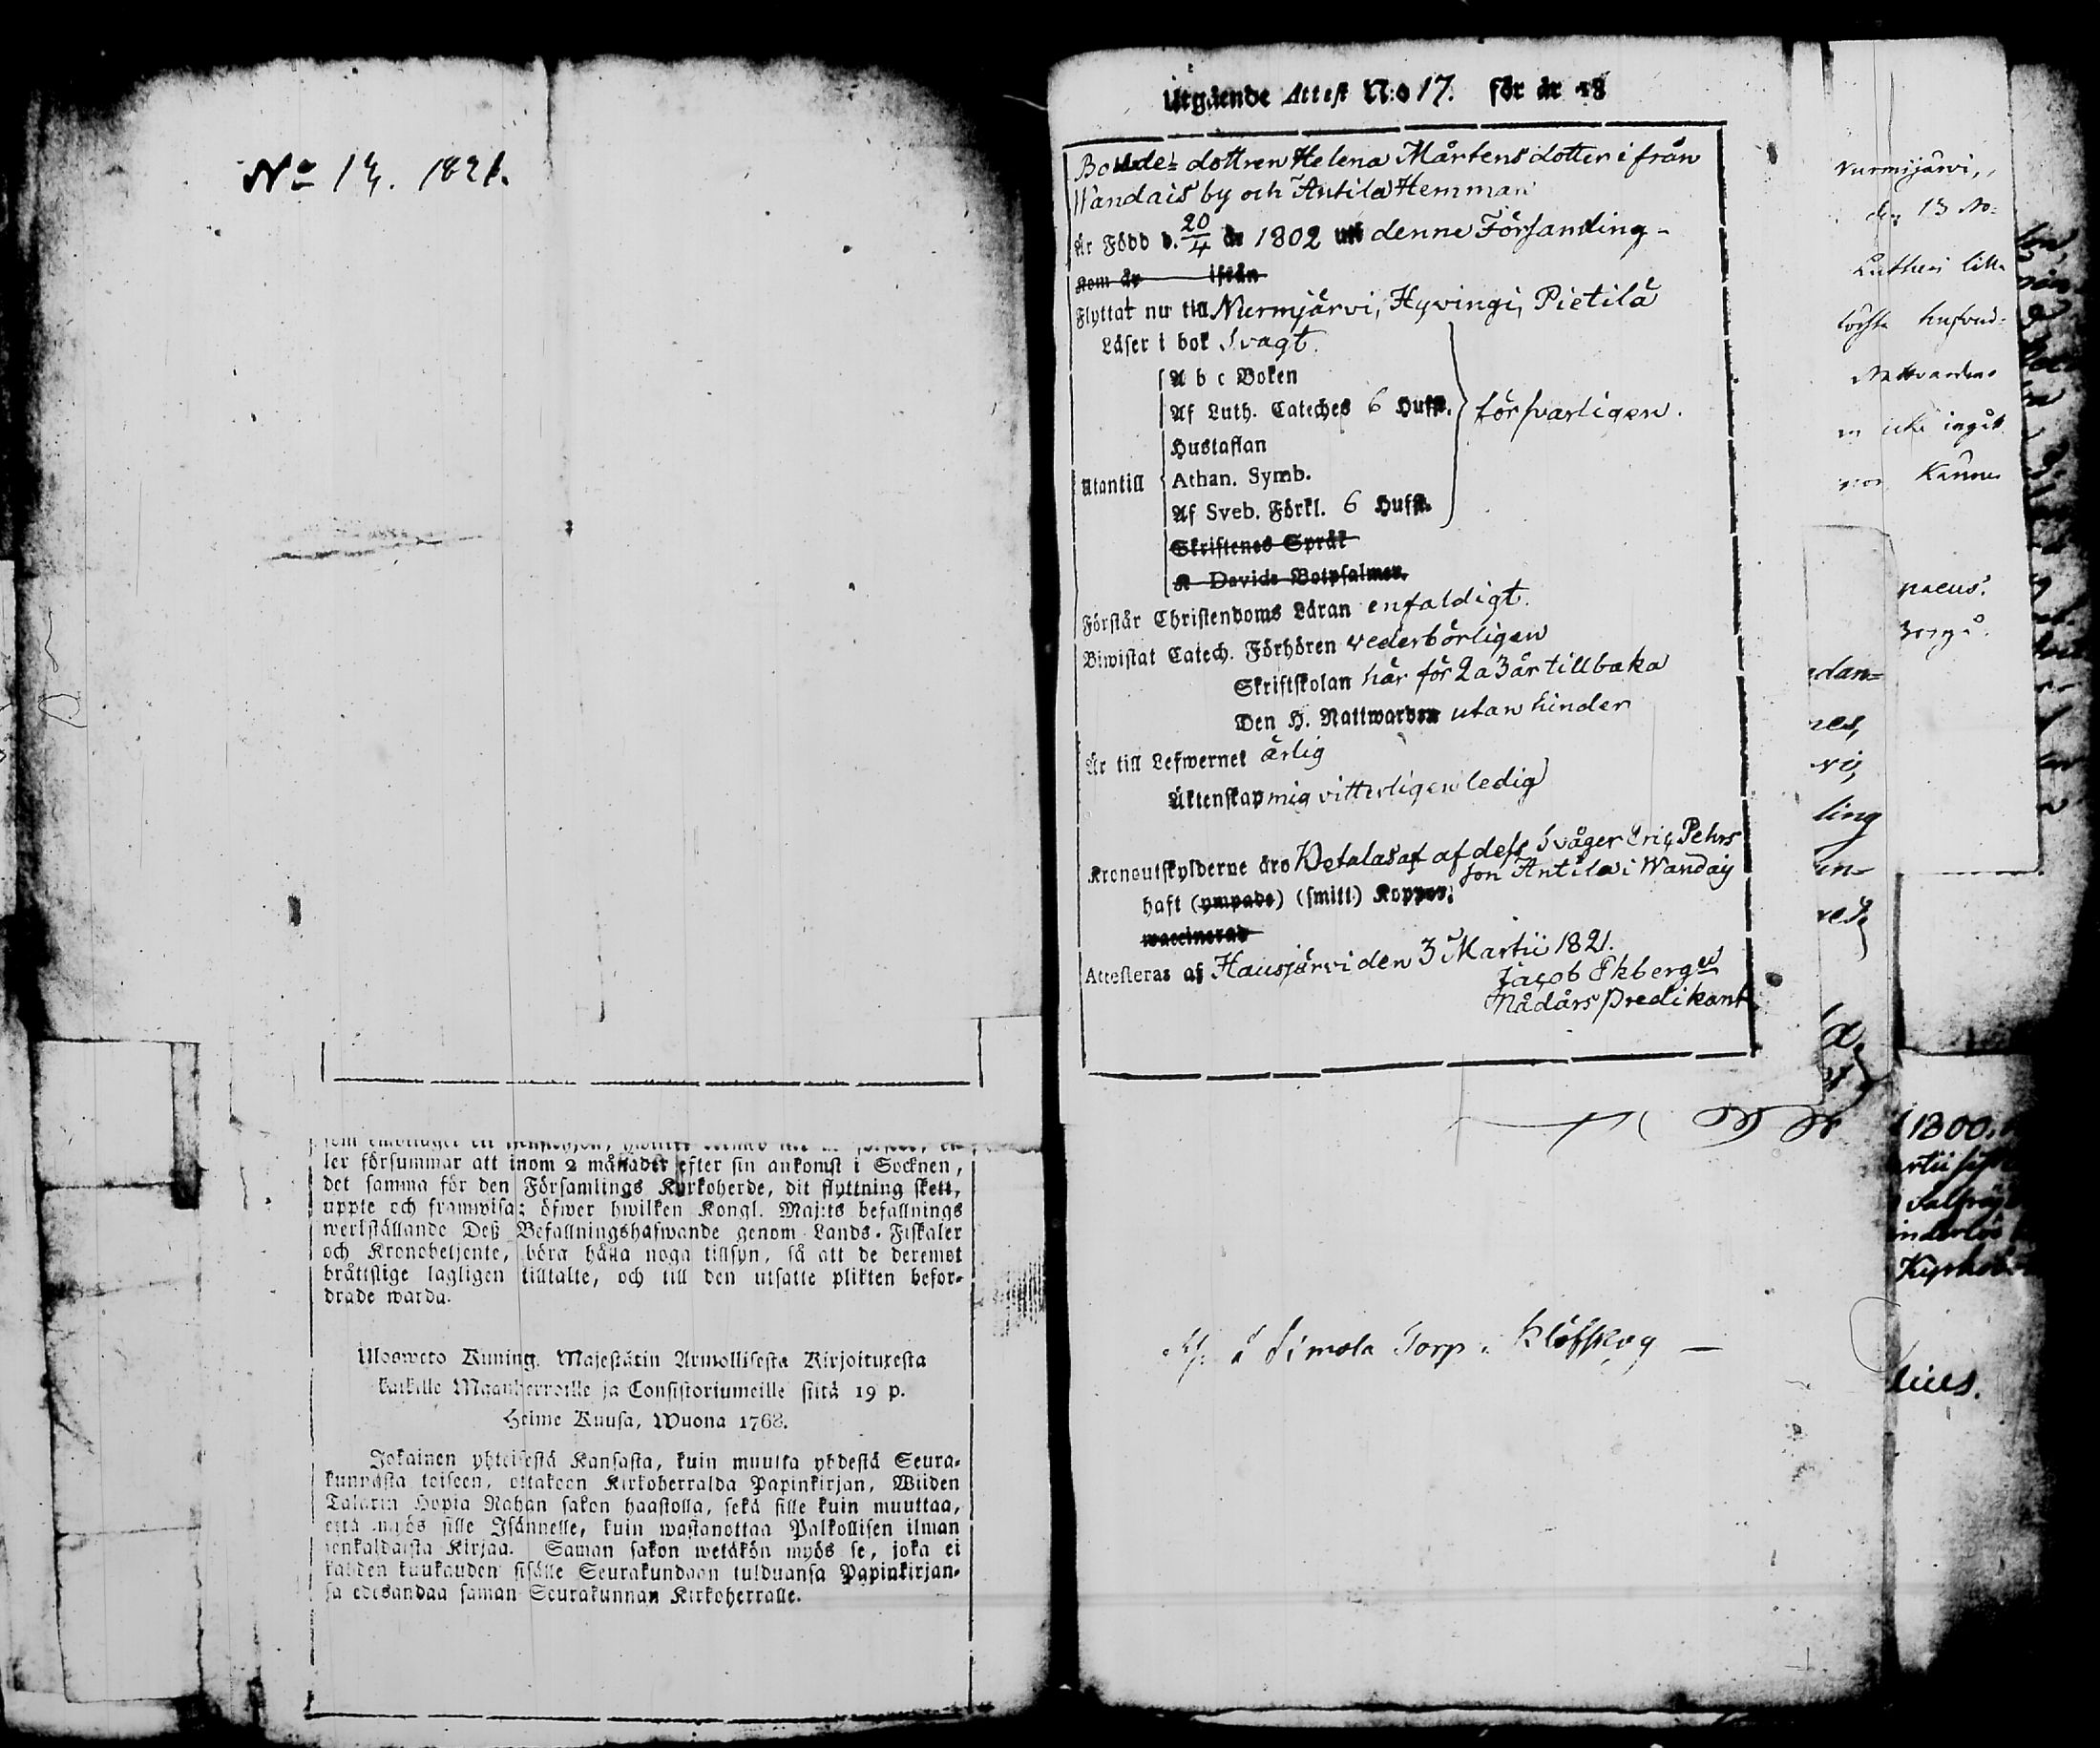 No 14. 1821.
ler försummar att inom 2 månader efter sin ankomst i Socknen,
det samma för den Församlings Kyrkoherde, dit flyttning skett,
uppte och framwisa; öfwer hwilken Kongl. Maj:ts befallnings
werkställande Deß Befallningshafwande genom Lands-Fiskaler
och Kronobetjente, böra hålla noga tillsyn, så att de deremot
bråttslige lagligen tilltalte, och till den utsatte plikten befor-
drade warda.
Ulosweto Kuning. Majestätin Armollisesta Kirjoituxesta
kaikille Maanherroille ja Consistoriumeille siitä 19 p.
Helme Kuusa, Wuona 1768.
Jokainen yhteisestä Kansasta, kuin muutta yhdestä Seura-
kunnasta toiseen, ottakoon Kirkoherralda Papinkirjan, Wiiden
Talarin Hopia Rahan sakon haastolla, sekä sille kuin muuttaa,
että myös sille Isännelle, kuin wastanottaa Palkollisen ilman
senkaldaista Kirjaa. Saman sakon wetäkön myös se, joka ei
kahden kuukauden sisälle Seurakundaan tulduansa Papinkirjan-
sa edesandaa saman Seurakunnan Kirkoherralle.
Utgående Attest N:o 17. för år 18
Bonde-dottren Helena Mårtensdotter ifrån
Wandais by och Antila Hemman
Är Född d. 20/4 år 1802 uti denne Församling-
Kom år ifrån
Flyttat nu till Nurmjärvi, Hyvingi, Pietilä
Läser i bok Svagt.
A b c Boken
Af Luth. Cateches 6 Hufst. försvarligen.
Hustaflan
Utantill Athan. Symb.
Af Sveb. Förkl. 6 Hufst.
Skriftenes Språk
K Davids Botpsalmer.
Förstår Christendoms Läran enfaldigt.
Biwistat Catech. Förhören vederbörligen
Skriftskolan här för 2 a 3 år tillbaka
Den H. Nattwarden utan hinder
Är till Lefwernet ärlig
Äktenskap mig vitterligen ledig
Kronoutskylderne äro Betalas af af dess Svåger Eric Pehrs
son Antila i Wandais
haft (ympade) (smitt.) Koppor.
waccinerad
Attesteras af Hausjärvi den 3 Martii 1821.
Jacob Ekberg
Nådårs Predikant
å Simola Torp i Klöfskog —
Nurmijärvi,
den 13 No-
Lutheri lilla
största hufvud-
Nattvarden
en icke ingåt
Känner
naeus.
Borgå.
dan-
res,
vi,
ling
un-
1800.